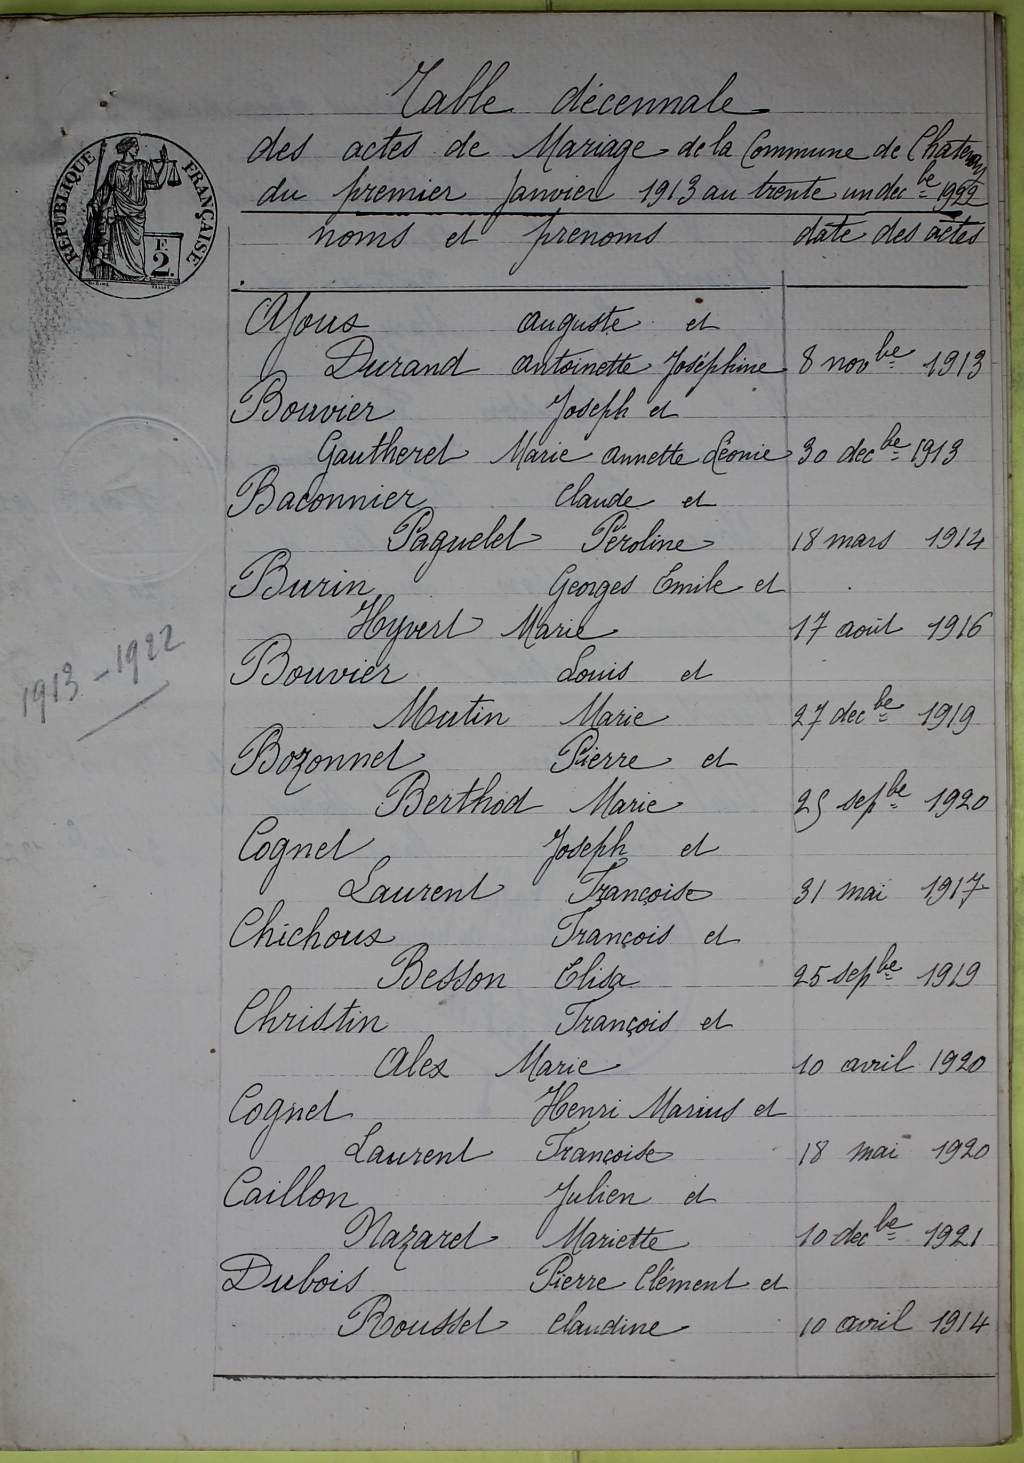 Table décennale
des actes de Mariage de la Commune de Chatenay
du premier Janvier 1913 au trente un decbe 1922
noms et prenoms date des actes
RÉPUBLIQUE FRANÇAISE
F.
2.
Ajoux auguste et
Durand antoinette Joséphine 8 novbe 1913
Bouvier Joseph et
Gautheret Marie annette Léonie 30 decbe 1913
Baconnier Claude et
Paquelet Péroline 18 mars 1914
Burin Georges Emile et
Hyvert Marie 17 août 1916
Bouvier Louis et
Mutin Marie 27 decbe 1919
1913-1922
Bozonnet Pierre et
Berthod Marie 25 sepbe 1920
Cognet Joseph et
Laurent Françoise 31 mai 1917
Chichoux François et
Besson Elisa 25 sepbe 1919
Christin François et
Alex Marie 10 avril 1920
Cognet Henri Marius et
Laurent Françoise 18 mai 1920
Caillon Julien et
Nazaret Mariette 10 decbe 1921
Dubois Pierre Clément et
Rousset Claudine 10 avril 1914